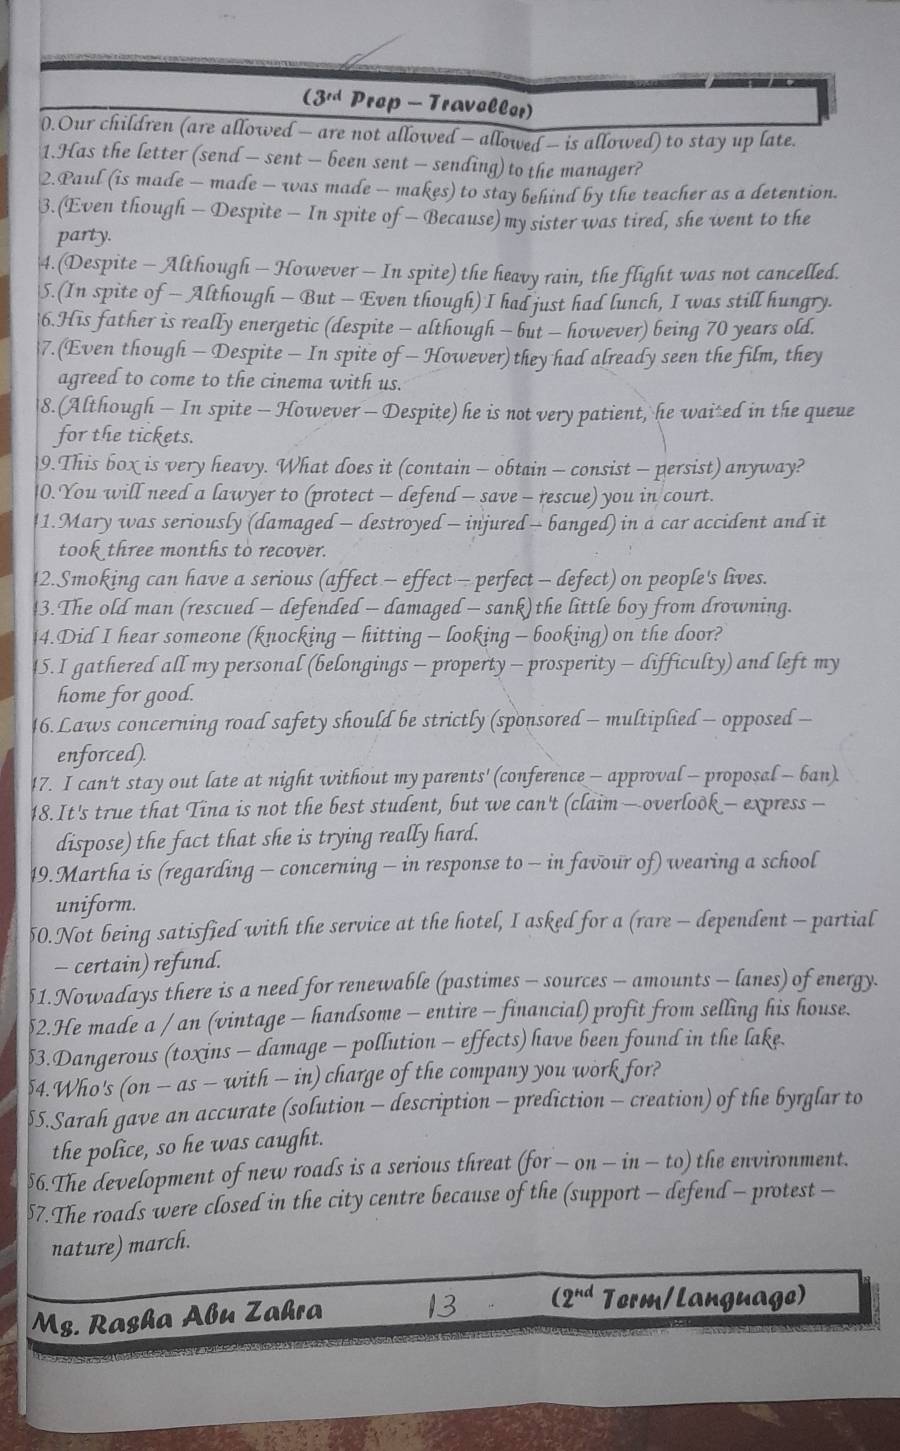 (3rd Prep – Traveller)
0.Our children (are allowed – are not allowed – allowed – is allowed) to stay up late.
1.Has the letter (send – sent – been sent – sending) to the manager?
2.Paul (is made – made – was made – makes) to stay behind by the teacher as a detention.
3.(Even though – Despite – In spite of – Because) my sister was tired, she went to the
party.
4.(Despite – Although – However – In spite) the heavy rain, the flight was not cancelled.
5.(In spite of – Although – But – Even though) I had just had lunch, I was still hungry.
36.His father is really energetic (despite – although – but – however) being 70 years old.
37.(Even though – Despite – In spite of – However) they had already seen the film, they
agreed to come to the cinema with us.
38.(Although – In spite – However – Despite) he is not very patient, he waited in the queue
for the tickets.
39.This box is very heavy. What does it (contain – obtain – consist – persist) anyway?
40.You will need a lawyer to (protect – defend – save – rescue) you in court.
41.Mary was seriously (damaged – destroyed – injured – banged) in a car accident and it
took three months to recover.
42.Smoking can have a serious (affect – effect – perfect – defect) on people's lives.
43.The old man (rescued – defended – damaged – sank) the little boy from drowning.
44.Did I hear someone (knocking – hitting – looking – booking) on the door?
45.I gathered all my personal (belongings – property – prosperity – difficulty) and left my
home for good.
46.Laws concerning road safety should be strictly (sponsored – multiplied – opposed –
enforced).
47. I can't stay out late at night without my parents' (conference – approval – proposal – ban).
48.It's true that Tina is not the best student, but we can't (claim – overlook – express –
dispose) the fact that she is trying really hard.
49.Martha is (regarding – concerning – in response to – in favour of) wearing a school
uniform.
50.Not being satisfied with the service at the hotel, I asked for a (rare – dependent – partial
– certain) refund.
51.Nowadays there is a need for renewable (pastimes – sources – amounts – lanes) of energy.
52.He made a / an (vintage – handsome – entire – financial) profit from selling his house.
53.Dangerous (toxins – damage – pollution – effects) have been found in the lake.
54.Who's (on – as – with – in) charge of the company you work for?
55.Sarah gave an accurate (solution – description – prediction – creation) of the byrglar to
the police, so he was caught.
56.The development of new roads is a serious threat (for – on – in – to) the environment.
57.The roads were closed in the city centre because of the (support – defend – protest –
nature) march.
Ms. Rasha Abu Zahra 13 (2nd Term/Language)